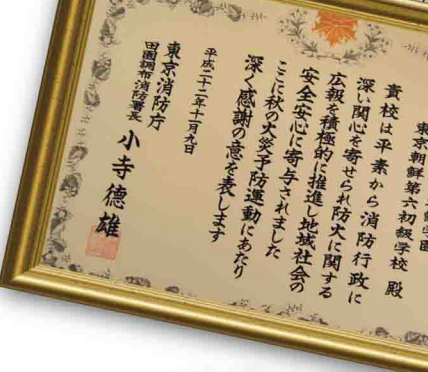 東京朝鮮第六初級学校 殿
貴校は平素から消防行政に
深い関心を寄せられ防火に関する
広報を積極的に推進し地域社会の
安全安心に寄与されました
ここに秋の火災予防運動にあたり
深く感謝の意を表します
平成二十二年十一月九日
東京消防庁
田園調布消防署長 小寺德雄